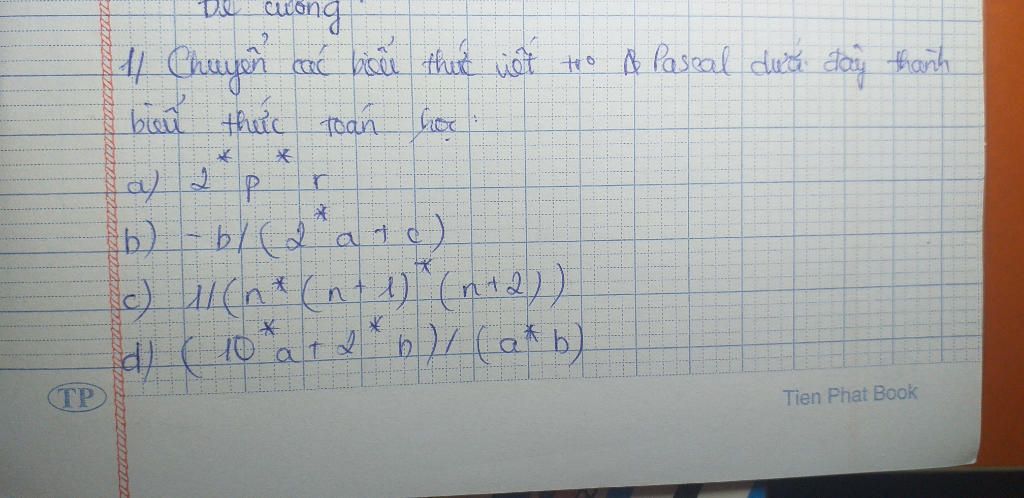 Đề cương
1) Chuyển các biểu thức viết tro Pascal dưới đây thành
biểu thức toán học:
a) 2 * p * r
b) - b / ( 2 * a + c )
c) 1 / ( n * ( n + 1 ) * ( n + 2 ) )
d) ( 10 * a + 2 * b ) / ( a * b )
TP
Tien Phat Book